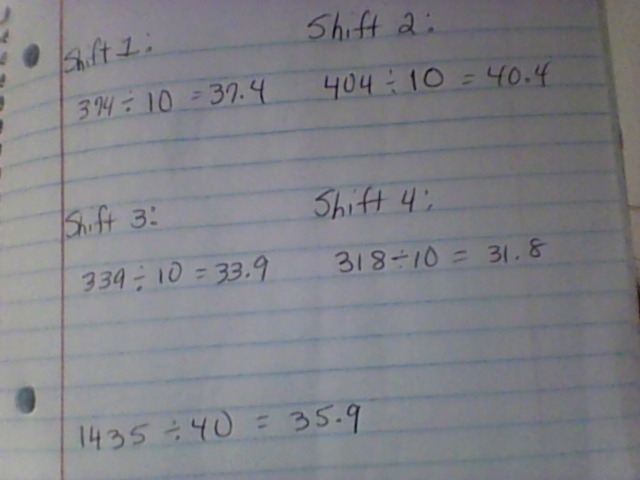 Shift 1:
374 ÷ 10 = 37.4
Shift 2:
404 ÷ 10 = 40.4
Shift 3:
339 ÷ 10 = 33.9
Shift 4:
318 ÷ 10 = 31.8
1435 ÷ 40 = 35.9